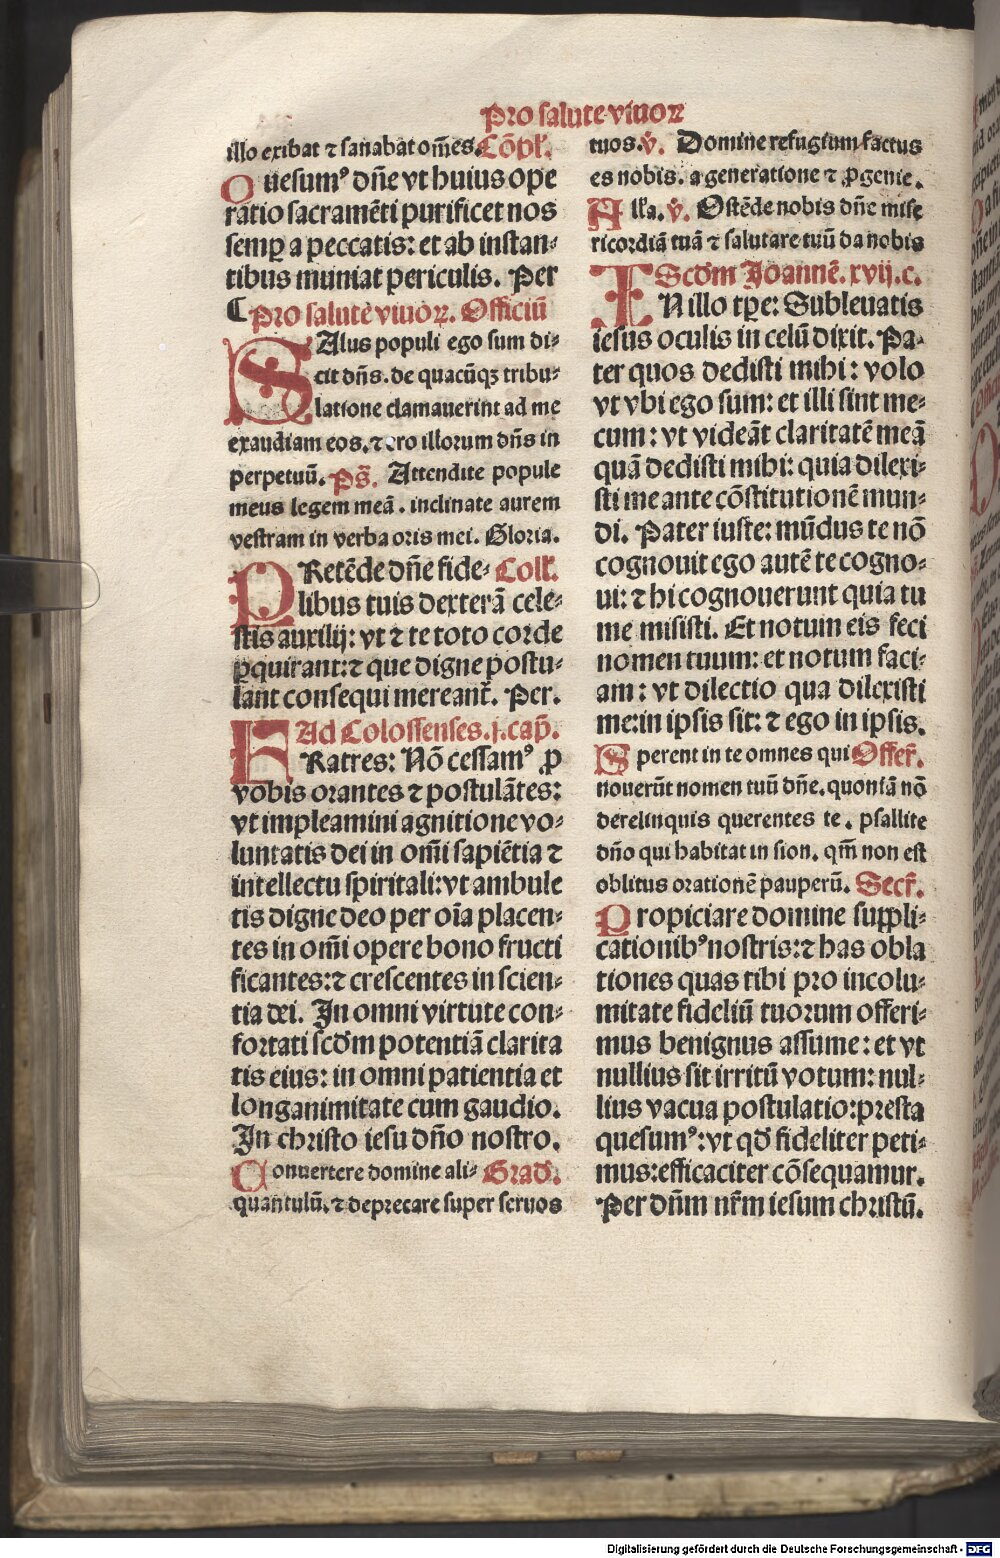 Pro salute viuoꝝ
illo exibat ⁊ sanabat om̄es. Cōpl'.
Quesumꝰ dn̄e vt huius ope
ratio sacramēti purificet nos
semꝑ a peccatis: et ab instan-
tibus muniat periculis. Per
Pro salute viuoꝝ. Officiū
SAlus populi ego sum di-
cit dn̄s. de quacūqꝫ tribu-
latione clamauerint ad me
exaudiam eos. ⁊ ero illorum dn̄s in
perpetuū. Ps̄. Attendite popule
meus legem meā. inclinate aurem
vestram in verba oris mei. Gloria.
PRetēde dn̄e fide- Coll'.
libus tuis dexterā cele-
stis auxilij: vt ⁊ te toto corde
ꝑquirant: ⁊ que digne postu-
lant consequi mereant̄. Per.
Ad Colossenses. j. cap̄.
FRatres: Nō cessamꝰ ꝓ
vobis orantes ⁊ postulātes:
vt impleamini agnitione vo-
luntatis dei in om̄i sapiētia ⁊
intellectu spiritali: vt ambule
tis digne deo per oīa placen-
tes in om̄i opere bono fructi
ficantes: ⁊ crescentes in scien-
tia dei. In omni virtute con-
fortati scd'm potentiā clarita
tis eius: in omni patientia et
longanimitate cum gaudio.
In christo iesu dn̄o nostro.
Conuertere domine ali- Grad'.
quantulū. ⁊ deprecare super seruos
tuos. v̄. Domine refugium factus
es nobis. a generatione ⁊ ꝓgenie.
Alľa. v̄. Ostēde nobis dn̄e mise
ricordiā tuā ⁊ salutare tuū da nobis
Scd'm Joannē. xvij. c.
IN illo tp̄e: Subleuatis
iesus oculis in celū dixit. Pa-
ter quos dedisti mihi: volo
vt vbi ego sum: et illi sint me-
cum: vt videāt claritatē meā
quā dedisti mihi: quia dilexi-
sti me ante cōstitutionē mun-
di. Pater iuste: mūdus te nō
cognouit ego autē te cogno-
ui: ⁊ hi cognouerunt quia tu
me misisti. Et notum eis feci
nomen tuum: et notum faci-
am: vt dilectio qua dilexisti
me: in ipsis sit: ⁊ ego in ipsis.
Sperent in te omnes qui Offer̄.
nouerūt nomen tuū dn̄e. quoniā nō
derelinquis querentes te. psallite
dn̄o qui habitat in sion. qm̄ non est
oblitus orationē pauperū. Secr̄.
Propiciare domine suppli-
cationibꝰ nostris: ⁊ has obla
tiones quas tibi pro incolu-
mitate fideliū tuorum offeri-
mus benignus assume: et vt
nullius sit irritū votum: nul-
lius vacua postulatio: presta
quesumꝰ: vt qd' fideliter peti-
mus: efficaciter cōsequamur.
Per dn̄m nr̄m iesum christū.
Digitalisierung gefördert durch die Deutsche Forschungsgemeinschaft - DFG